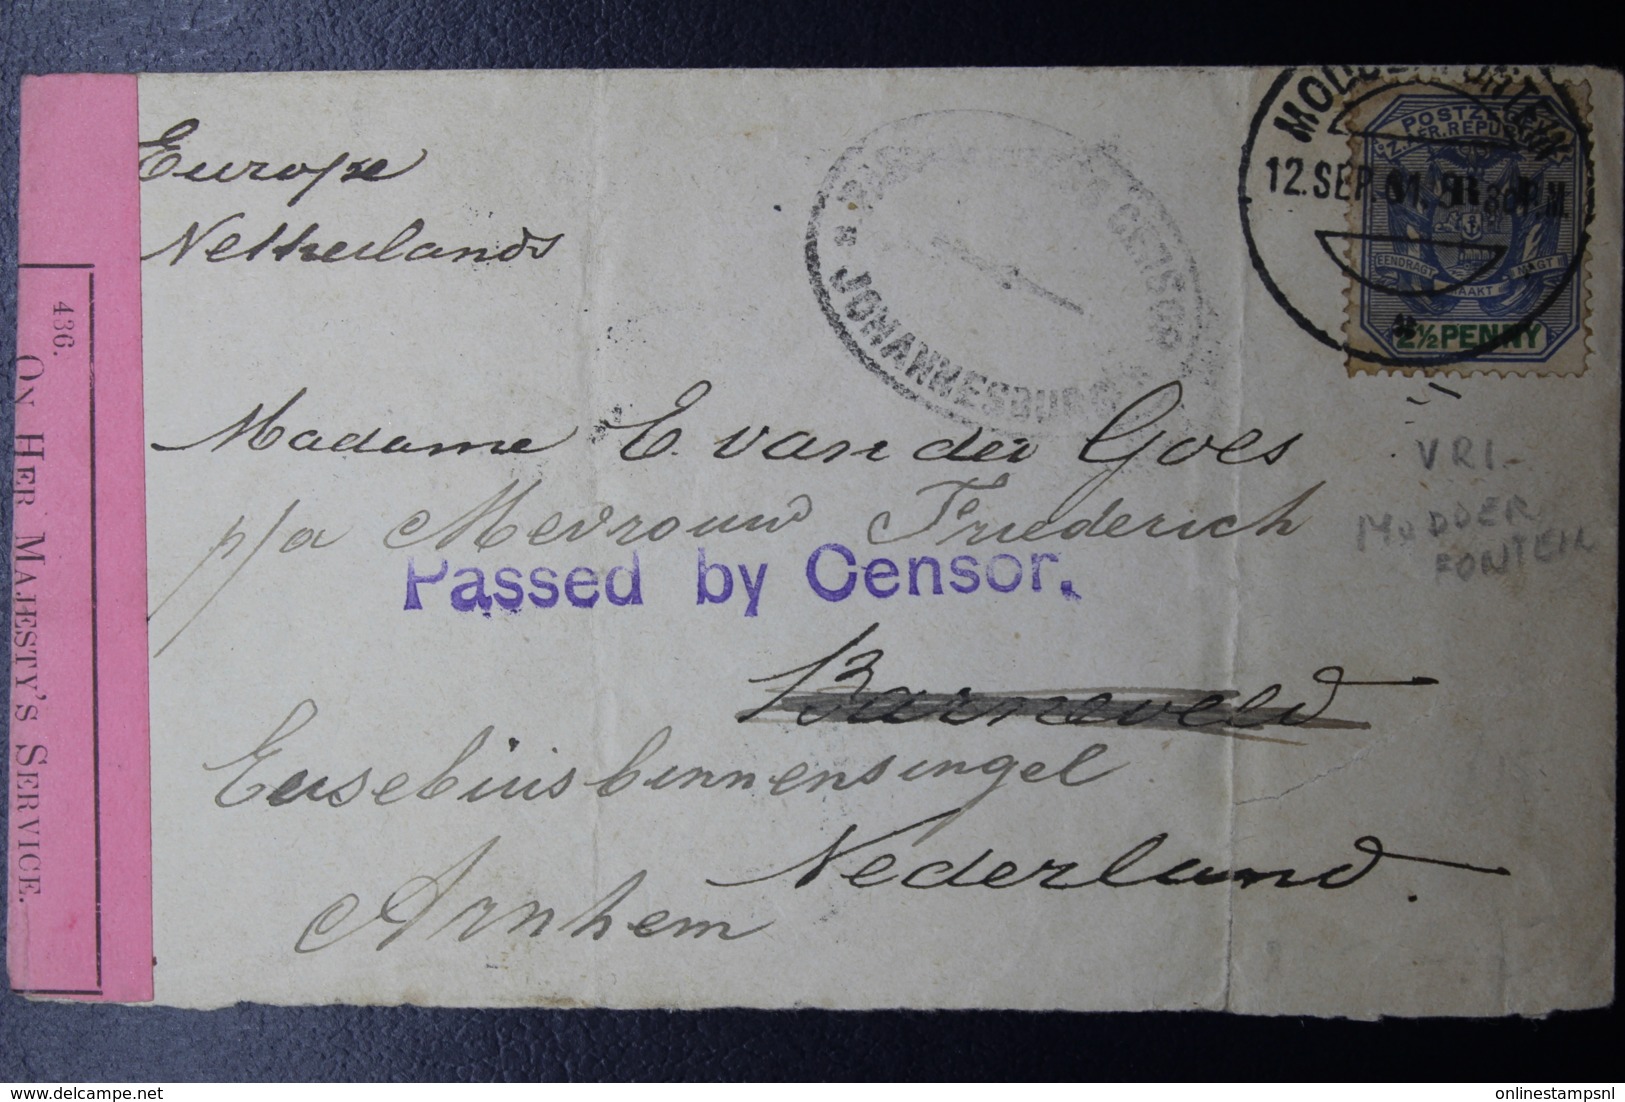 Europe
Netherlands
PASSED PRESS CENSOR
JOHANNESBURG
MODDERFONTEIN
12.SEP.01.
POSTZEGEL
Z.AFR.REPUBLIEK
V.R.I.
EENDRAGT MAAKT MAGT
2½ PENNY
436.
ON HER MAJESTY'S SERVICE.
Madame E. van der Goes
p/a Mevrouw Friederich
Passed by Censor.
Barneveld
Eusebiusbinnensingel
Nederland.
Arnhem
VRI
MODDER
FONTEIN
onlinestampsnl